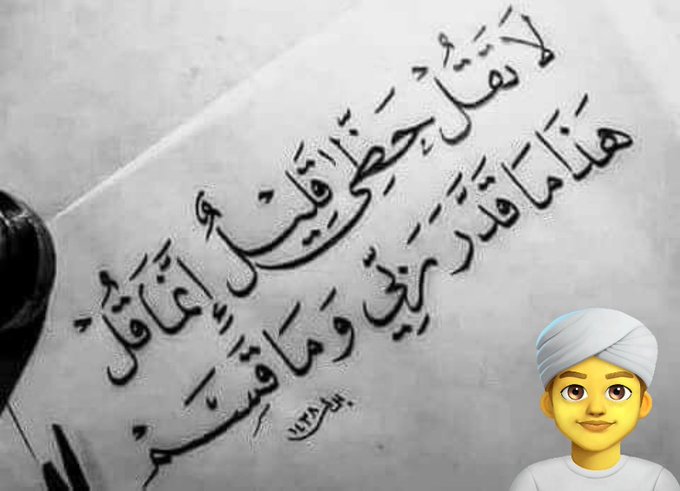 لَا تَقُلْ حَظِّي قَلِيلٌ إِنَّمَا قُلْ
هَذَا مَا قَدَّرَ رَبِّي وَمَا قَسَمْ
١٤٣٨